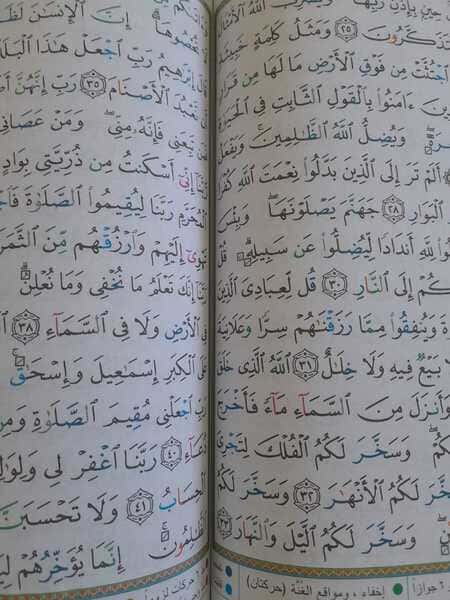 حِينٍ بِإِذْنِ رَبِّهَا ۗ وَيَضْرِبُ ٱللَّهُ ٱلْأَمْثَا
تَذَكَّرُونَ ٢٥ وَمَثَلُ كَلِمَةٍ خَبِيثَةٍ
ٱجْتُثَّتْ مِن فَوْقِ ٱلْأَرْضِ مَا لَهَا مِن قَرَارٍ
ءَامَنُوا۟ بِٱلْقَوْلِ ٱلثَّابِتِ فِى ٱلْحَيَوٰةِ
وَيُضِلُّ ٱللَّهُ ٱلظَّٰلِمِينَ ۚ وَيَفْعَلُ
أَلَمْ تَرَ إِلَى ٱلَّذِينَ بَدَّلُوا۟ نِعْمَتَ ٱللَّهِ كُفْرًا
ٱلْبَوَارِ ٢٨ جَهَنَّمَ يَصْلَوْنَهَا ۖ وَبِئْسَ
لِلَّهِ أَندَادًا لِّيُضِلُّوا۟ عَن سَبِيلِهِۦ ۗ قُلْ
كُمْ إِلَى ٱلنَّارِ ٣٠ قُل لِّعِبَادِىَ ٱلَّذِينَ
وَيُنفِقُوا۟ مِمَّا رَزَقْنَٰهُمْ سِرًّا وَعَلَانِيَةً
لَّا بَيْعٌ فِيهِ وَلَا خِلَٰلٌ ٣١ ٱللَّهُ ٱلَّذِى خَلَقَ
وَأَنزَلَ مِنَ ٱلسَّمَآءِ مَآءً فَأَخْرَجَ
كُمْ ۖ وَسَخَّرَ لَكُمُ ٱلْفُلْكَ لِتَجْرِىَ
خَّرَ لَكُمُ ٱلْأَنْهَٰرَ ٣٢ وَسَخَّرَ لَكُمُ
وَسَخَّرَ لَكُمُ ٱلَّيْلَ وَٱلنَّهَارَ ٣٣
إخفاء ، ومواقع الغُنَّة (حركتان)
إِنَّ ٱلْإِنسَٰنَ لَظَ
تُحْصُوهَآ ۗ
قَالَ إِبْرَٰهِيمُ رَبِّ ٱجْعَلْ هَٰذَا ٱلْبَلَدَ
نَّعْبُدَ ٱلْأَصْنَامَ ٣٥ رَبِّ إِنَّهُنَّ أَضْ
تَبِعَنِى فَإِنَّهُۥ مِنِّى ۖ وَمَنْ عَصَانِى
رَّبَّنَآ إِنِّىٓ أَسْكَنتُ مِن ذُرِّيَّتِى بِوَادٍ
ٱلْمُحَرَّمِ رَبَّنَا لِيُقِيمُوا۟ ٱلصَّلَوٰةَ فَٱجْ
تَهْوِىٓ إِلَيْهِمْ وَٱرْزُقْهُم مِّنَ ٱلثَّمَرَ
رَبَّنَآ إِنَّكَ تَعْلَمُ مَا نُخْفِى وَمَا نُعْلِنُ ۗ
فِى ٱلْأَرْضِ وَلَا فِى ٱلسَّمَآءِ ٣٨
عَلَى ٱلْكِبَرِ إِسْمَٰعِيلَ وَإِسْحَٰقَ ۚ
رَبِّ ٱجْعَلْنِى مُقِيمَ ٱلصَّلَوٰةِ وَمِن
دُعَآءِ ٤٠ رَبَّنَا ٱغْفِرْ لِى وَلِوَٰلِ
ٱلْحِسَابُ ٤١ وَلَا تَحْسَبَنَّ
ٱلظَّٰلِمُونَ ۚ إِنَّمَا يُؤَخِّرُهُمْ لِيَ